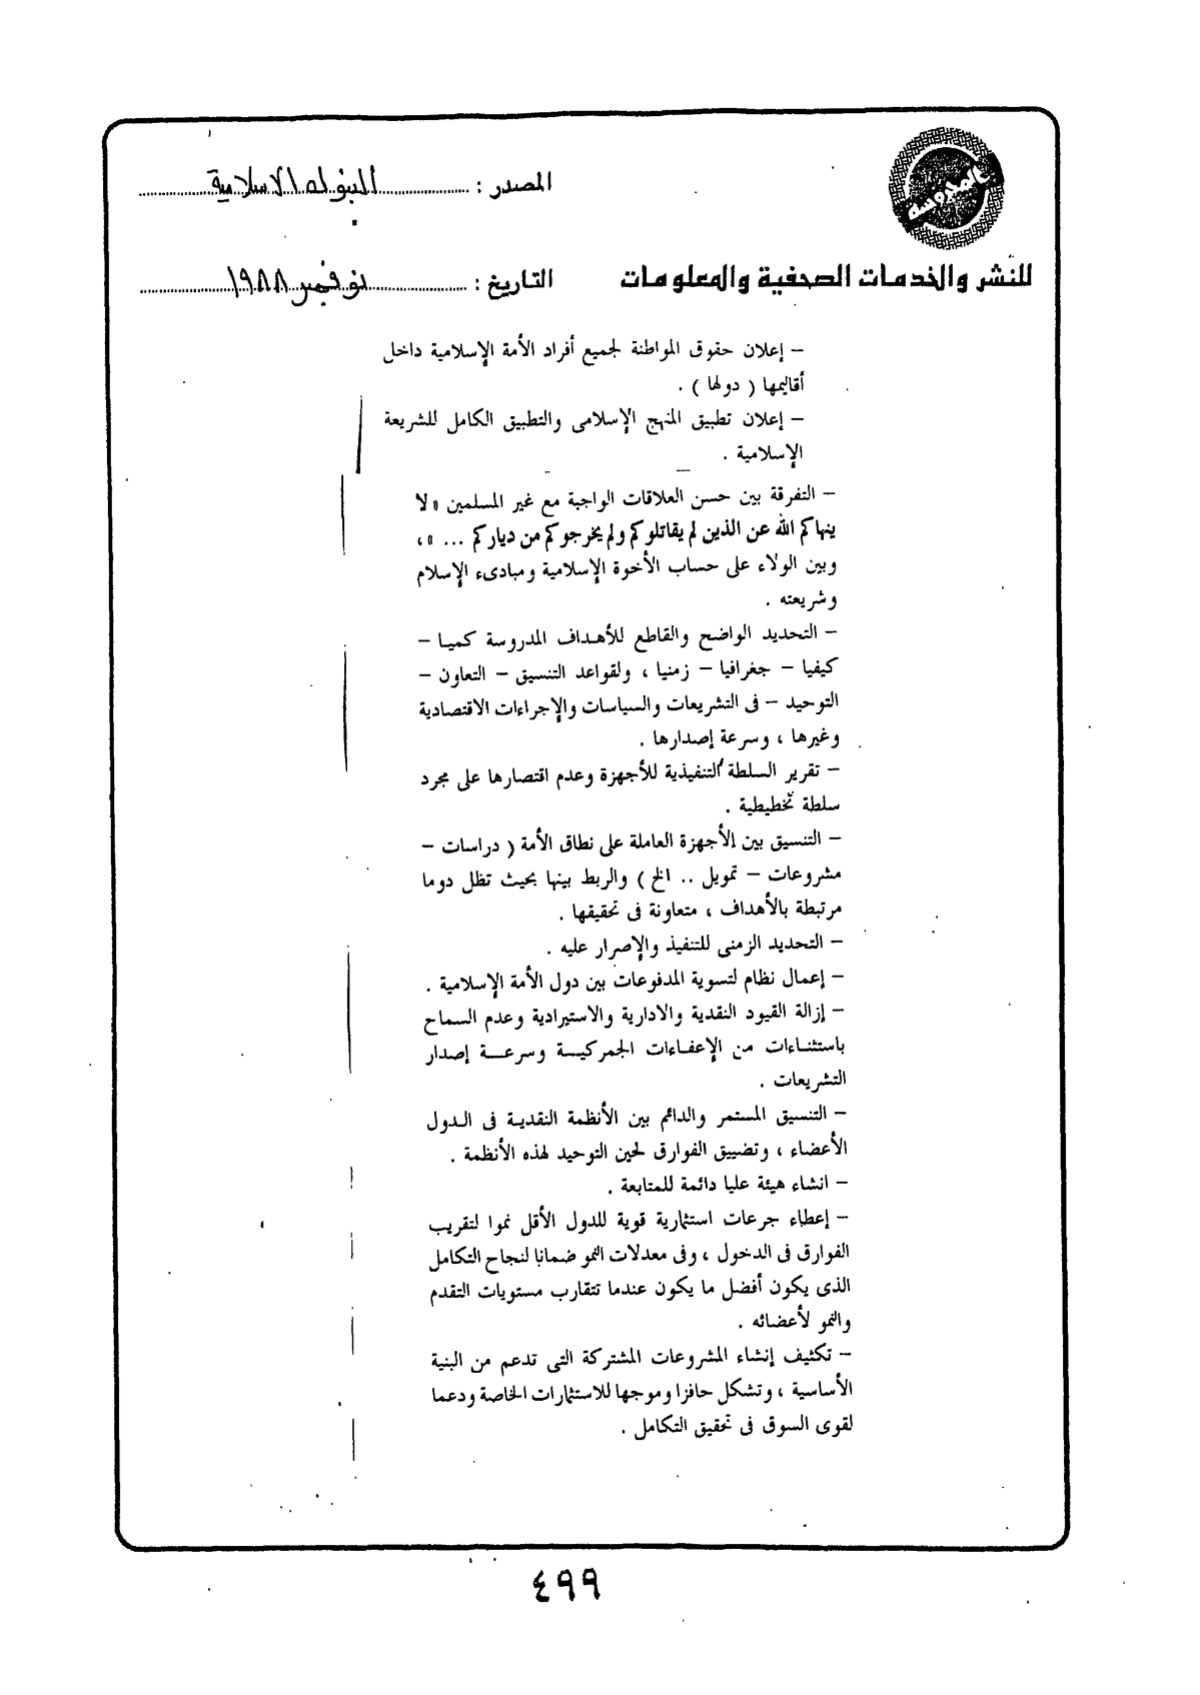 المحروسة
للنشر والخدمات الصحفية والمعلومات
المصدر : البنوك الاسلامية
التاريخ : نوفمبر ١٩٨٨
– إعلان حقوق المواطنة لجميع أفراد الأمة الإسلامية داخل
أقاليمها ( دولها ) .
– إعلان تطبيق المنهج الإسلامى والتطبيق الكامل للشريعة
الإسلامية .
– التفرقة بين حسن العلاقات الواجبة مع غير المسلمين « لا
ينهاكم الله عن الذين لم يقاتلوكم ولم يخرجوكم من دياركم ... » ،
وبين الولاء على حساب الأخوة الإسلامية ومبادىء الإسلام
وشريعته .
– التحديد الواضح والقاطع للأهداف المدروسة كميا –
كيفيا – جغرافيا – زمنيا ، ولقواعد التنسيق – التعاون –
التوحيد – فى التشريعات والسياسات والإجراءات الاقتصادية
وغيرها ، وسرعة إصدارها .
– تقرير السلطة التنفيذية للأجهزة وعدم اقتصارها على مجرد
سلطة تخطيطية .
– التنسيق بين الأجهزة العاملة على نطاق الأمة ( دراسات –
مشروعات – تمويل .. الخ ) والربط بينها بحيث تظل دوما
مرتبطة بالأهداف ، متعاونة فى تحقيقها .
– التحديد الزمنى للتنفيذ والإصرار عليه .
– إعمال نظام لتسوية المدفوعات بين دول الأمة الإسلامية .
– إزالة القيود النقدية والادارية والاستيرادية وعدم السماح
باستثناءات من الإعفاءات الجمركية وسرعة إصدار
التشريعات .
– التنسيق المستمر والدائم بين الأنظمة النقدية فى الدول
الأعضاء ، وتضييق الفوارق لحين التوحيد لهذه الأنظمة .
– انشاء هيئة عليا دائمة للمتابعة .
– إعطاء جرعات استثمارية قوية للدول الأقل نموا لتقريب
الفوارق فى الدخول ، وفى معدلات النمو ضمانا لنجاح التكامل
الذى يكون أفضل ما يكون عندما تتقارب مستويات التقدم
والنمو لأعضائه .
– تكثيف إنشاء المشروعات المشتركة التى تدعم من البنية
الأساسية ، وتشكل حافزا وموجها للاستثمارات الخاصة ودعما
لقوى السوق فى تحقيق التكامل .
٤٩٩